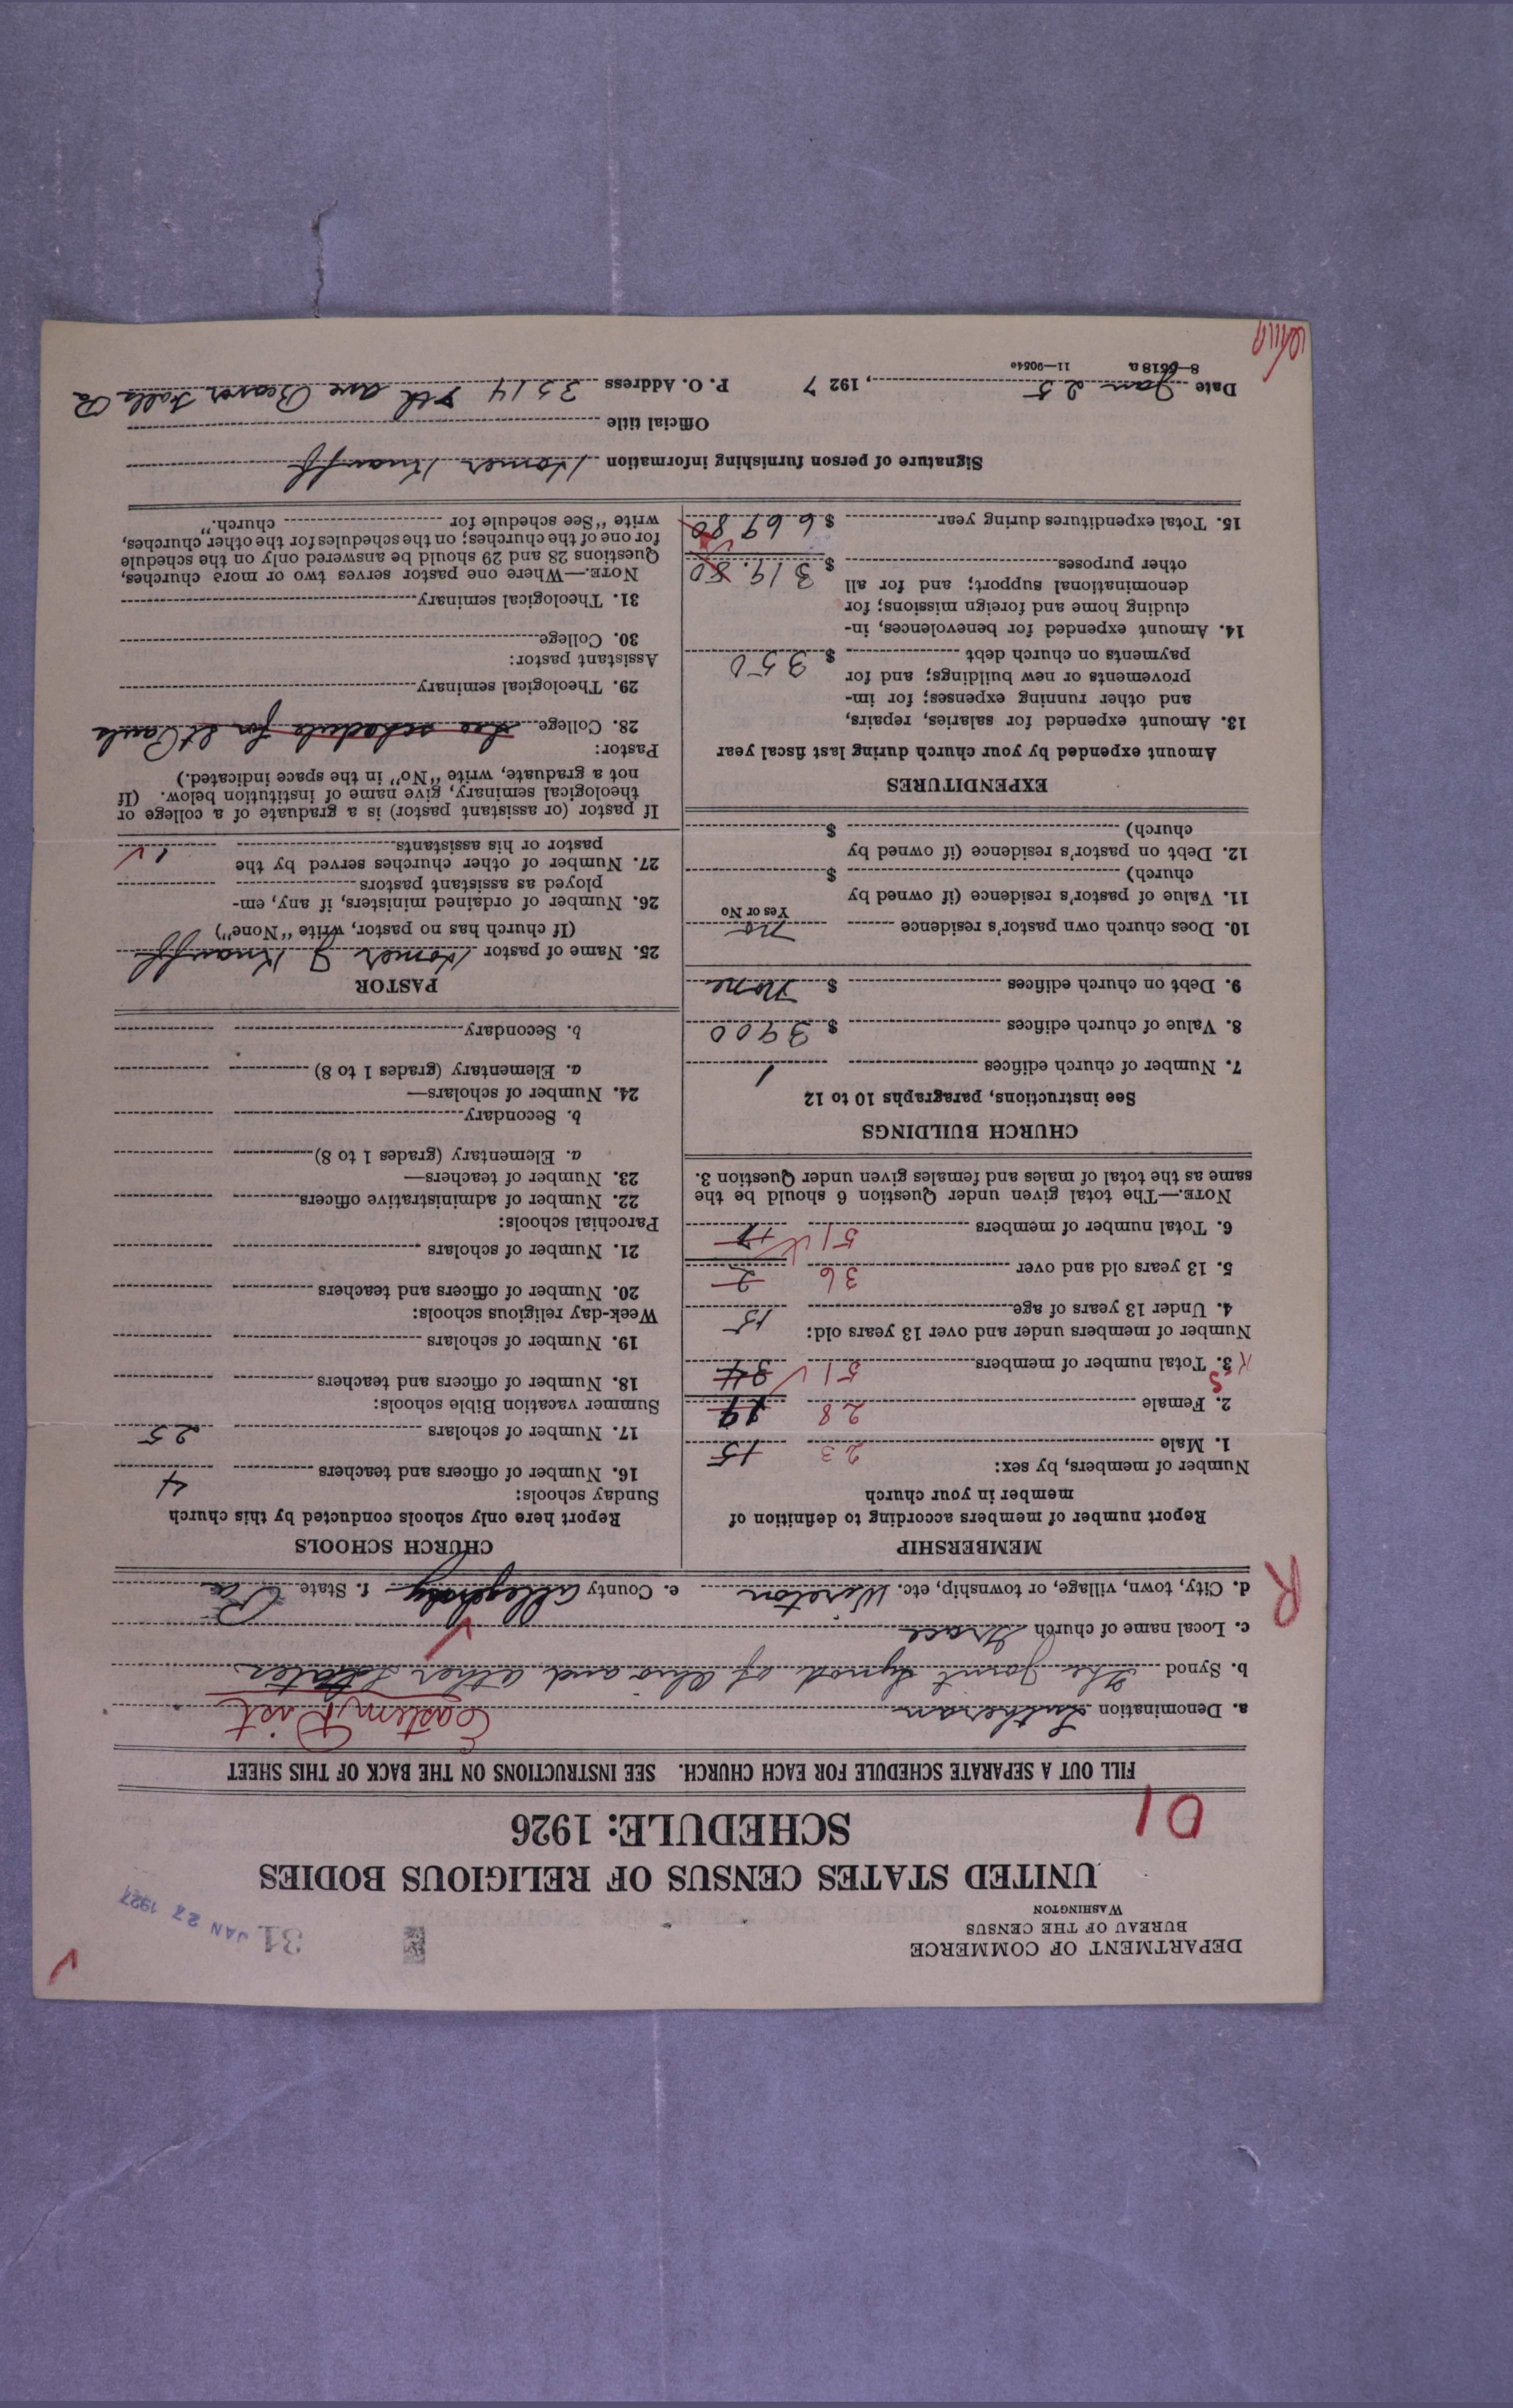 DEPARTMENT OF COMMERCE
BUREAU OF THE CENSUS
WASHINGTON
31 JAN 27 1927
UNITED STATES CENSUS OF RELIGIOUS BODIES
SCHEDULE: 1926
01
FILL OUT A SEPARATE SCHEDULE FOR EACH CHURCH. SEE INSTRUCTIONS ON THE BACK OF THIS SHEET
a. Denomination Lutheran Eastern Dist
b. Synod The Joint Synod of Ohio and other States
c. Local name of church Grace
R
d. City, town, village, or township, etc. Wireton e. County Allegheny f. State Pa
MEMBERSHIP
Report number of members according to definition of
member in your church
Number of members, by sex:
1. Male 23 15
2. Female 28 19
3. Total number of members 51 34
Number of members under and over 13 years old:
4. Under 13 years of age 15
5. 13 years old and over 36 2
6. Total number of members 51 17
NOTE.—The total given under Question 6 should be the
same as the total of males and females given under Question 3.
CHURCH BUILDINGS
See instructions, paragraphs 10 to 12
7. Number of church edifices 1
8. Value of church edifices $ 3900
9. Debt on church edifices $ None
10. Does church own pastor's residence No
Yes or No
11. Value of pastor's residence (if owned by
church) $
12. Debt on pastor's residence (if owned by
church) $
EXPENDITURES
Amount expended by your church during last fiscal year
13. Amount expended for salaries, repairs,
and other running expenses; for im-
provements or new buildings; and for
payments on church debt $ 350
14. Amount expended for benevolences, in-
cluding home and foreign missions; for
denominational support; and for all
other purposes $ 319.80
15. Total expenditures during year $ 669 80
CHURCH SCHOOLS
Report here only schools conducted by this church
Sunday schools:
16. Number of officers and teachers 4
17. Number of scholars 25
Summer vacation Bible schools:
18. Number of officers and teachers
19. Number of scholars
Week-day religious schools:
20. Number of officers and teachers
21. Number of scholars
Parochial schools:
22. Number of administrative officers
23. Number of teachers—
a. Elementary (grades 1 to 8)
b. Secondary
24. Number of scholars—
a. Elementary (grades 1 to 8)
b. Secondary
PASTOR
25. Name of pastor Homer J Knauff
(If church has no pastor, write "None")
26. Number of ordained ministers, if any, em-
ployed as assistant pastors
27. Number of other churches served by the
pastor or his assistants 1
If pastor (or assistant pastor) is a graduate of a college or
theological seminary, give name of institution below. (If
not a graduate, write "No" in the space indicated.)
Pastor:
28. College See schedule for St Pauls
29. Theological seminary
Assistant pastor:
30. College
31. Theological seminary
NOTE.—Where one pastor serves two or more churches,
Questions 28 and 29 should be answered only on the schedule
for one of the churches; on the schedules for the other churches,
write "See schedule for church."
Signature of person furnishing information Homer Knauff
Official title
Date Jan 25, 1927 P. O. Address 3514 8th ave Beaver Falls Pa
8—6518a 11—9054e